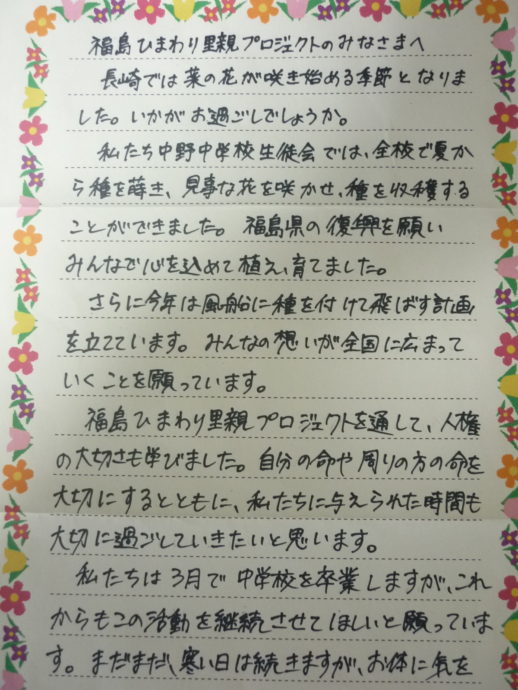 福島ひまわり里親プロジェクトのみなさまへ
長崎では菜の花が咲き始める季節となりま
した。いかがお過ごしでしょうか。
私たち中野中学校生徒会では、全校で夏か
ら種を蒔き、見事な花を咲かせ、種を収穫する
ことができました。福島県の復興を願い
みんなで心を込めて植え、育てました。
さらに今年は風船に種を付けて飛ばす計画
を立てています。みんなの想いが全国に広まって
いくことを願っています。
福島ひまわり里親プロジェクトを通して、人権
の大切さも学びました。自分の命や周りの方の命を
大切にするとともに、私たちに与えられた時間も
大切に過ごしていきたいと思います。
私たちは3月で中学校を卒業しますが、これ
からもこの活動を継続させてほしいと願っていま
す。まだまだ、寒い日は続きますが、お体に気を